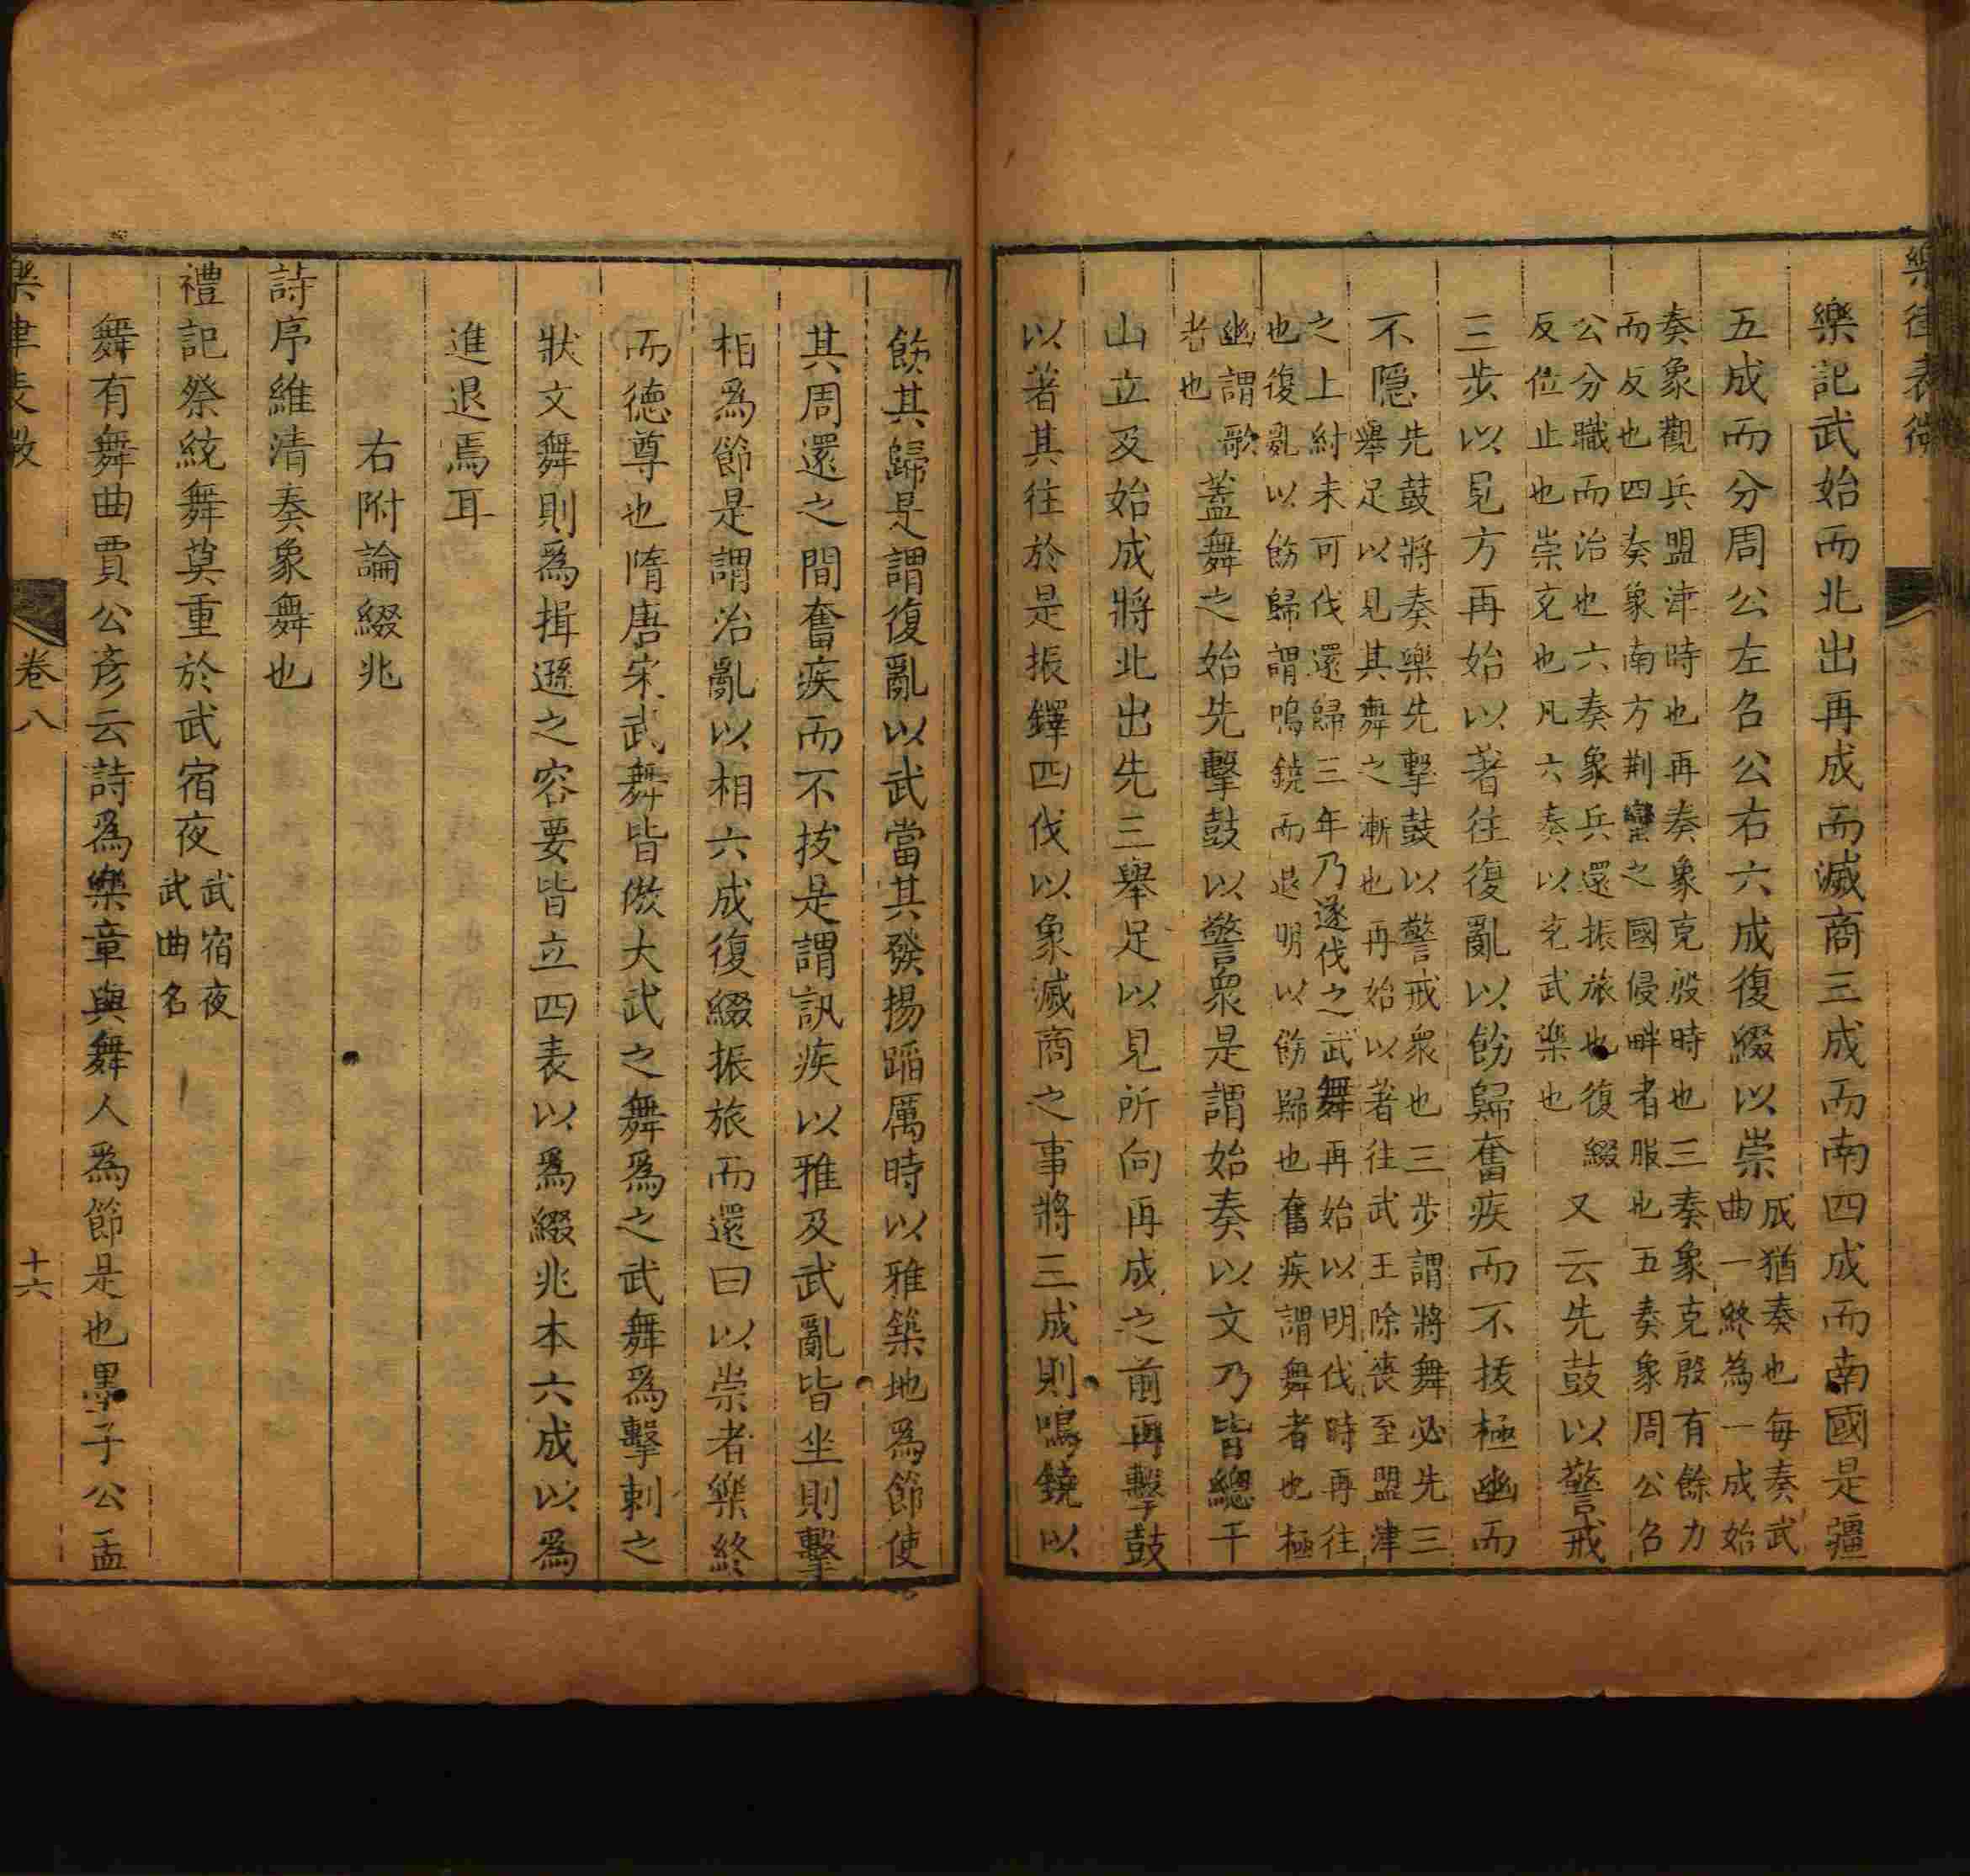 樂律表微
樂記武始而北出再成而滅商三成而南四成而南國是疆
五成而分周公左召公右六成復綴以崇
成猶奏也每奏武
曲一終為一成始
奏象觀兵盟津時也再奏象克殷時也三奏象克殷有餘力
而反也四奏象南方荆蠻之國侵畔者服也五奏象周公召
公分職而治也六奏象兵還振旅也復綴
反位止也崇充也凡六奏以充武樂也
又云先鼓以警戒
三步以見方再始以著往復亂以飭歸奮疾而不拔極幽而
不隱
先鼓將奏樂先擊鼓以警戒衆也三步謂將舞必先三
舉足以見其舞之漸也再始以著往武王除喪至盟津
之上紂未可伐還歸三年乃遂伐之武舞再始以明伐時再往
也復亂以飭歸謂鳴鐃而退明以飭歸也奮疾謂舞者也極
幽謂歌
者也
蓋舞之始先擊鼓以警衆是謂始奏以文乃皆總干
山立及始成將北出先三舉足以見所向再成之前再擊鼓
以著其往於是振鐸四伐以象滅商之事將三成則鳴鐃以
飭其歸是謂復亂以武當其發揚蹈厲時以雅築地爲節使
其周還之間奮疾而不拔是謂訊疾以雅及武亂皆坐則擊
相爲節是謂治亂以相六成復綴振旅而還曰以崇者樂終
而德尊也隋唐宋武舞皆倣大武之舞爲之武舞爲擊刺之
狀文舞則爲揖遜之容要皆立四表以爲綴兆本六成以爲
進退焉耳
右附論綴兆
詩序維清奏象舞也
禮記祭統舞莫重於武宿夜
武宿夜
武曲名
舞有舞曲賈公彥云詩爲樂章與舞人爲節是也墨子公孟
樂律表微
卷八
十六